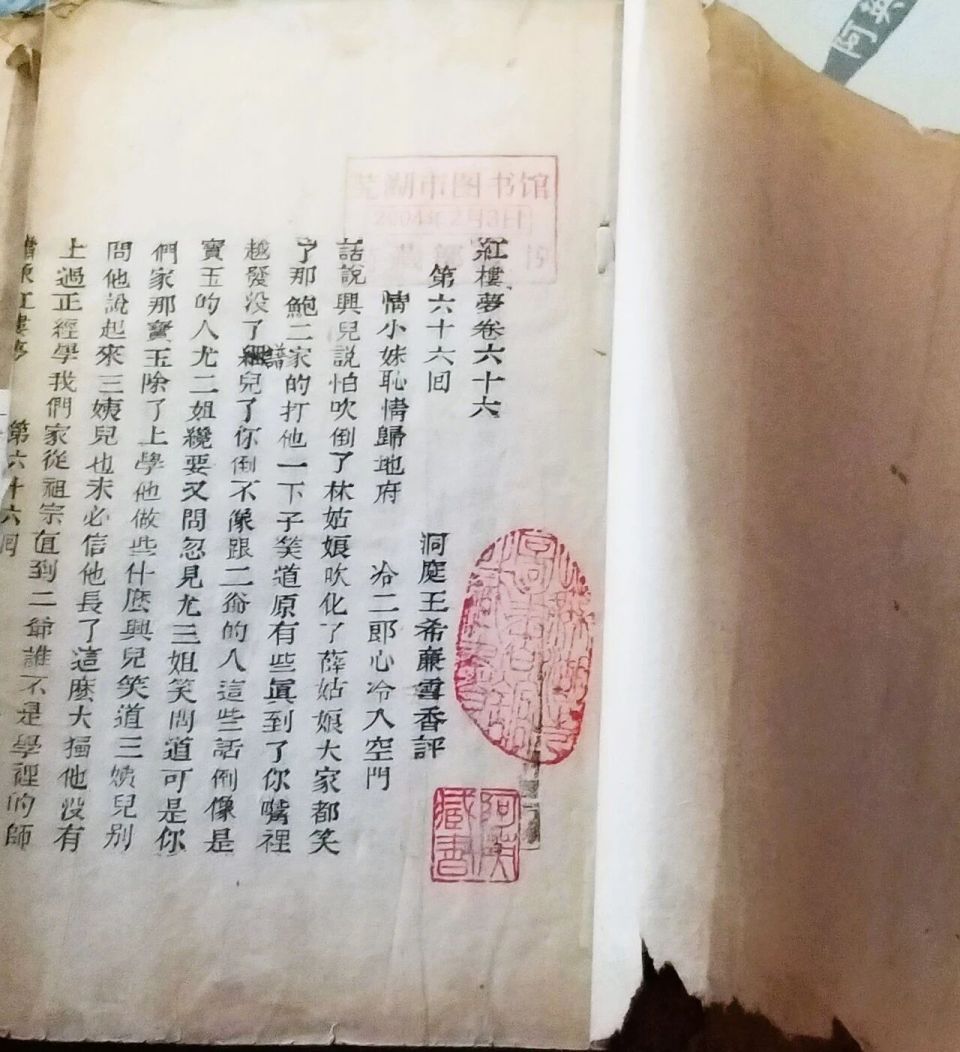 紅樓夢卷六十六
洞庭王希廉雪香評
第六十六回
情小妹恥情歸地府 冷二郎心冷入空門
話說興兒說怕吹倒了林姑娘吹化了薛姑娘大家都笑
了那鮑二家的打他一下子笑道原有些眞到了你嘴裡
越發没了兒了你倒不像跟二爺的人這些話倒像是
寶玉的人尤二姐纔要又問忽見尤三姐笑問道可是你
們家那寶玉除了上學他做些什麽興兒笑道三姨兒別
問他說起來三姨兒也未必信他長了這麽大獨他没有
上過正經學我們家從祖宗直到二爺誰不是學裡的師
第六十六回
芜湖市图书馆
2004年2月3日
阿英藏書
阿英